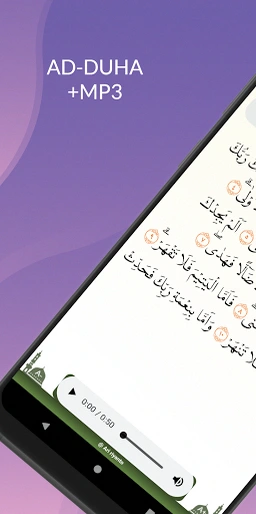 AD-DUHA
+MP3
رَبُّكَ
أَلَمْ يَجِدْكَ
ضَآلًّا فَهَدَىٰ ٧
فَأَمَّا الْيَتِيمَ فَلَا تَقْهَرْ ٩
تَنْهَرْ ١٠ وَأَمَّا بِنِعْمَةِ رَبِّكَ فَحَدِّثْ
0:00 / 0:50